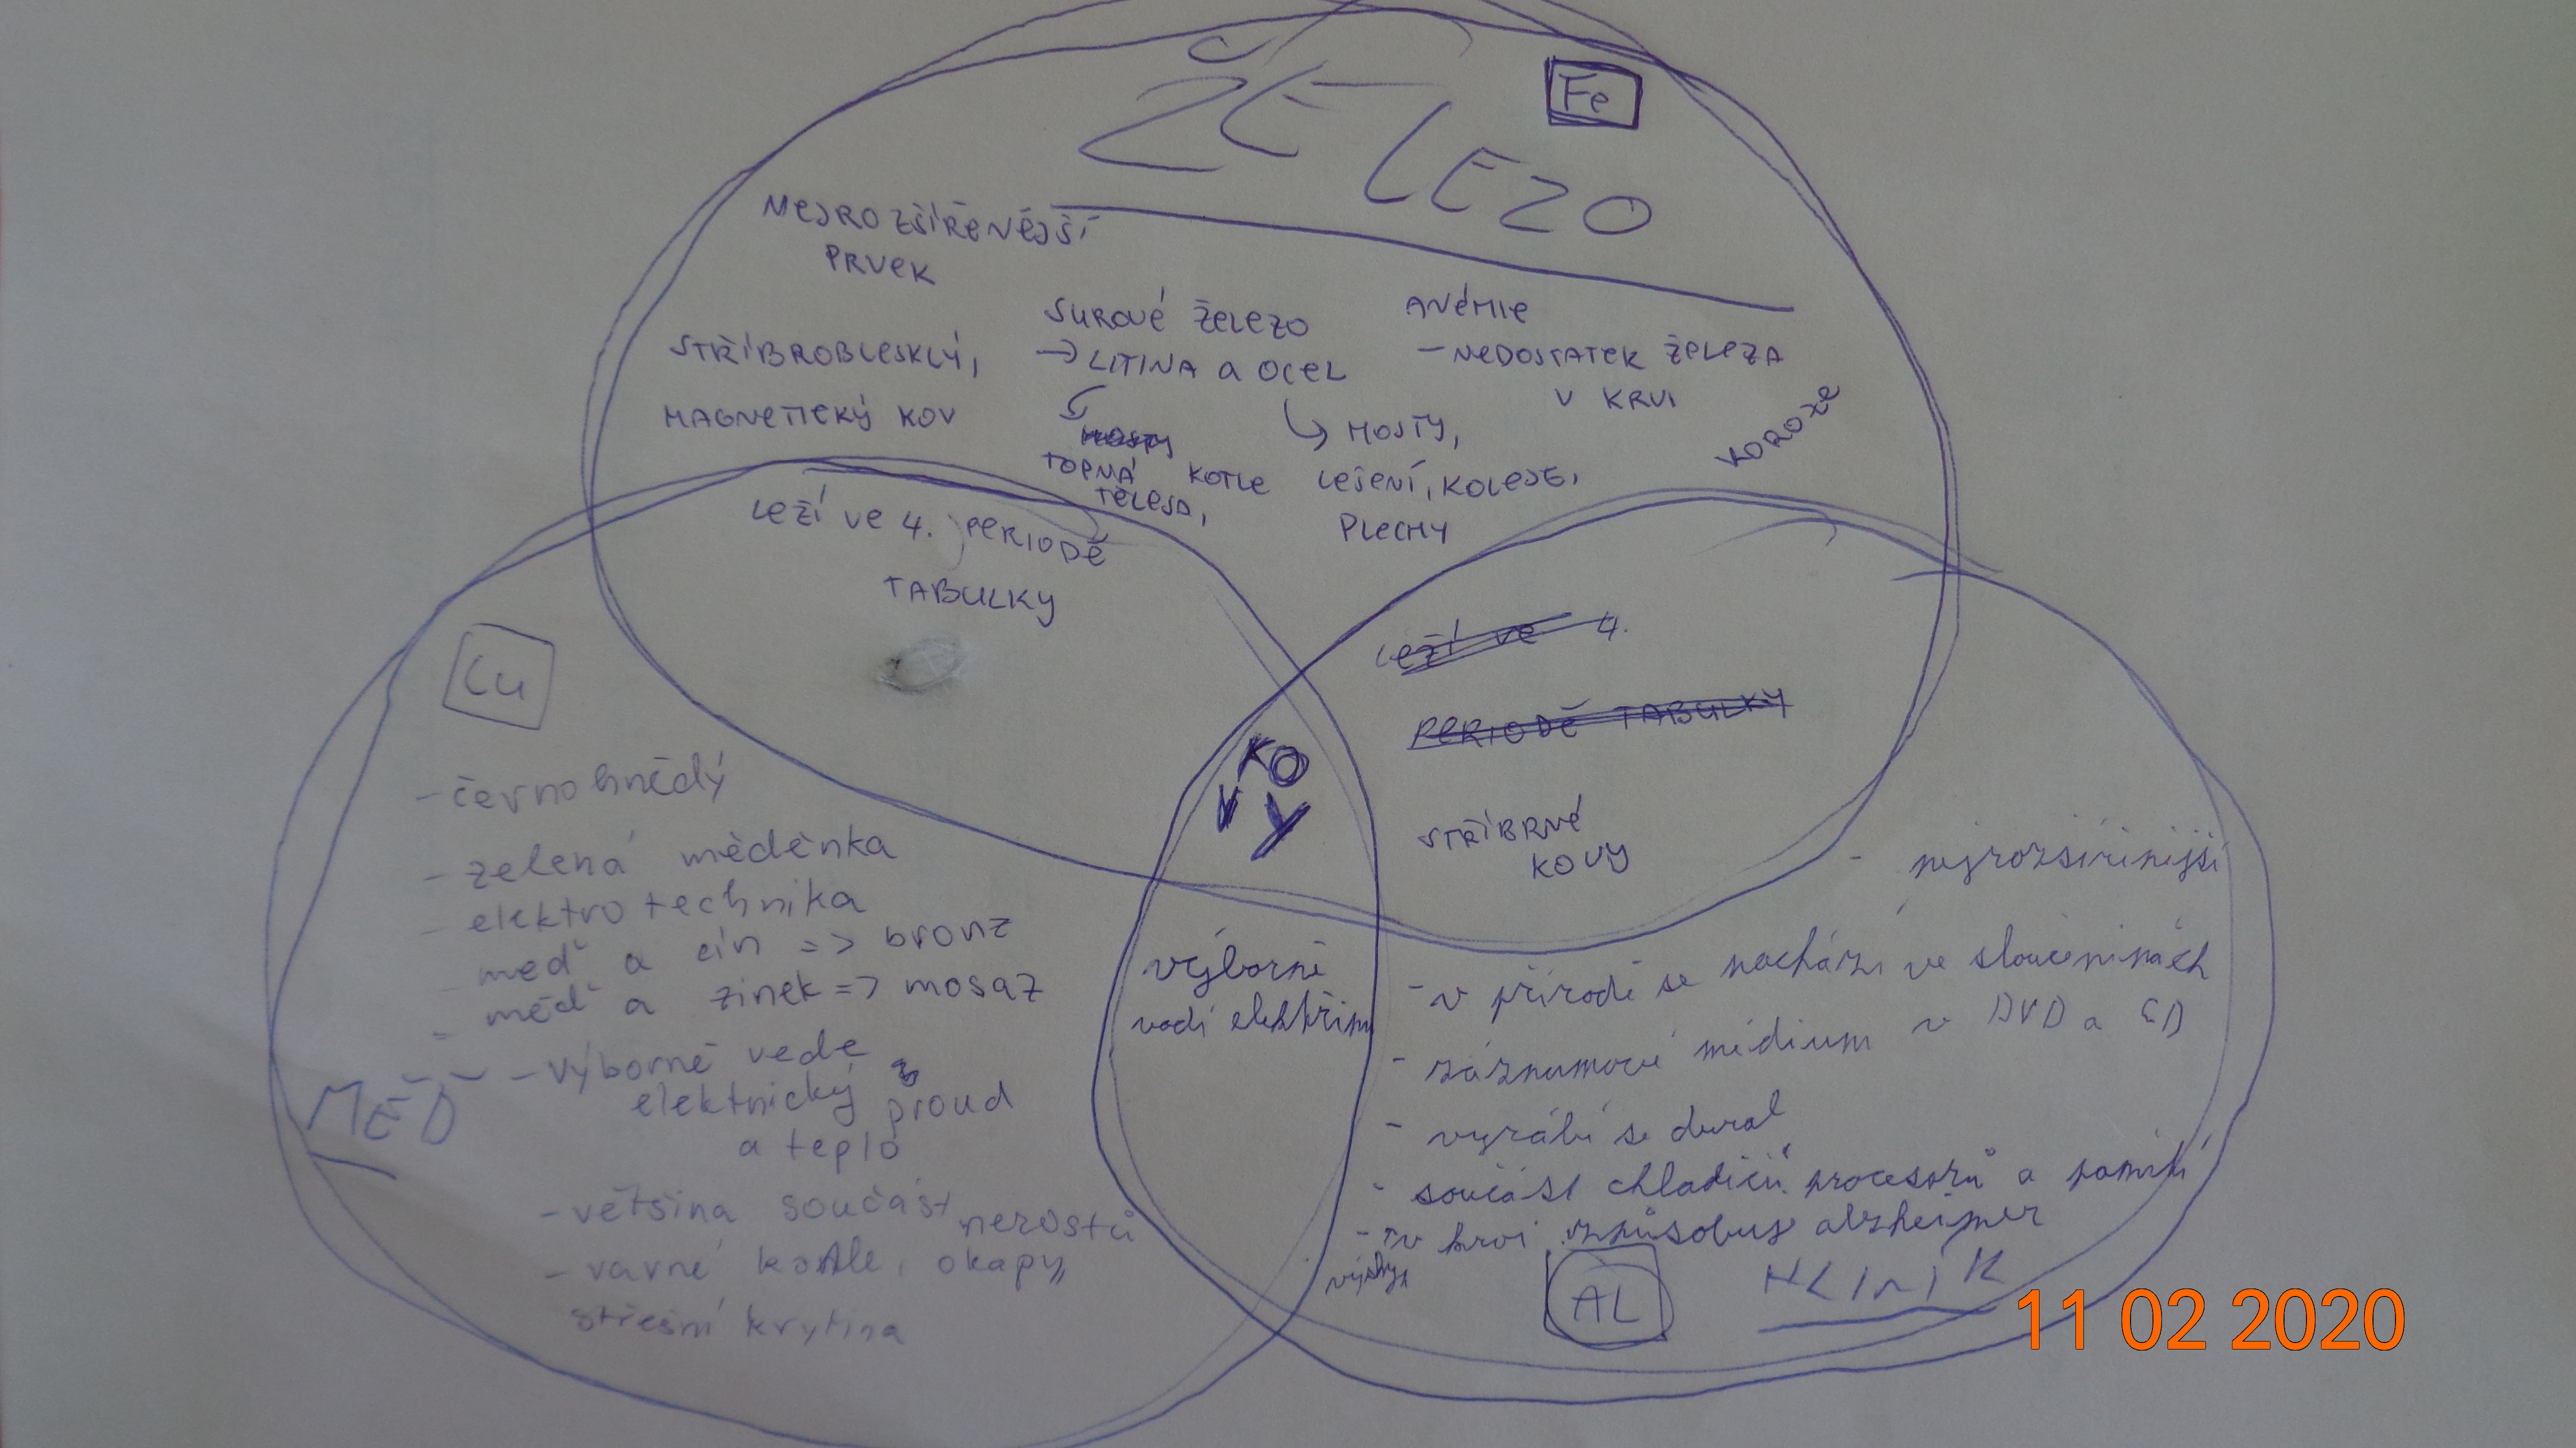 ŽELEZO
Fe
NEJROZŠÍŘENĚJŠÍ
PRVEK
STŘÍBROBLESKLÝ,
MAGNETICKÝ KOV
SUROVÉ ŽELEZO
→ LITINA a OCEL
MOSTY
TOPNÁ
TĚLESA,
KOTLE
MOSTY,
LEŠENÍ, KOLEJE,
PLECHY
ANÉMIE
- NEDOSTATEK ŽELEZA
V KRVI
KOROZE
LEŽÍ VE 4. PERIODĚ
TABULKY
LEŽÍ VE 4.
PERIODĚ TABULKY
STŘÍBRNÉ
KOVY
KO
VY
Cu
- černohnědý
- zelená měděnka
- elektrotechnika
- měď a cín => bronz
- měď a zinek => mosaz
MĚĎ
- výborně vede
elektrický proud
a teplo
- většina součást nerostů
- varné kotle, okapy,
střešní krytina
výborně
vodí elektřinu
- nejrozšířenější
- v přírodě se nachází ve sloučeninách
- záznamové médium v DVD a CD
- vyrábí se dural
- součást chladičů procesorů a pamětí
- v krvi způsobuje alzheimer
AL
HLINIK
11 02 2020